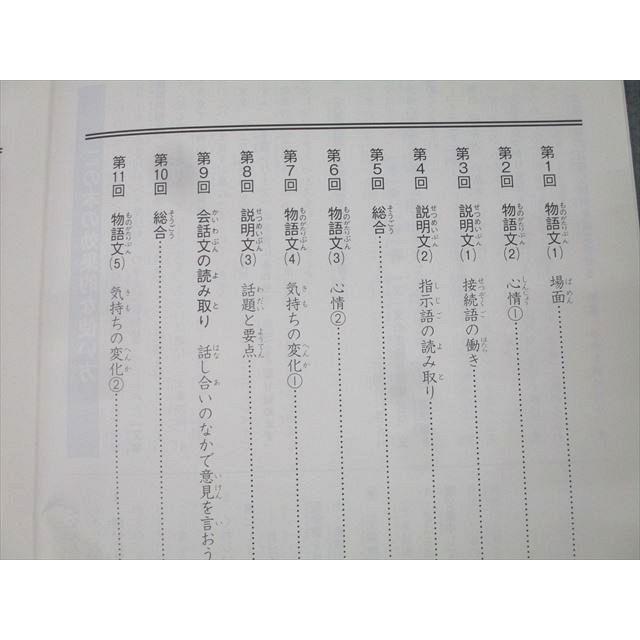 第1回 物語文(1) 場面
第2回 物語文(2) 心情①
第3回 説明文(1) 接続語の働き
第4回 説明文(2) 指示語の読み取り
第5回 総合
第6回 物語文(3) 心情②
第7回 物語文(4) 気持ちの変化①
第8回 説明文(3) 話題と要点
第9回 会話文の読み取り 話し合いのなかで意見を言おう
第10回 総合
第11回 物語文(5) 気持ちの変化②